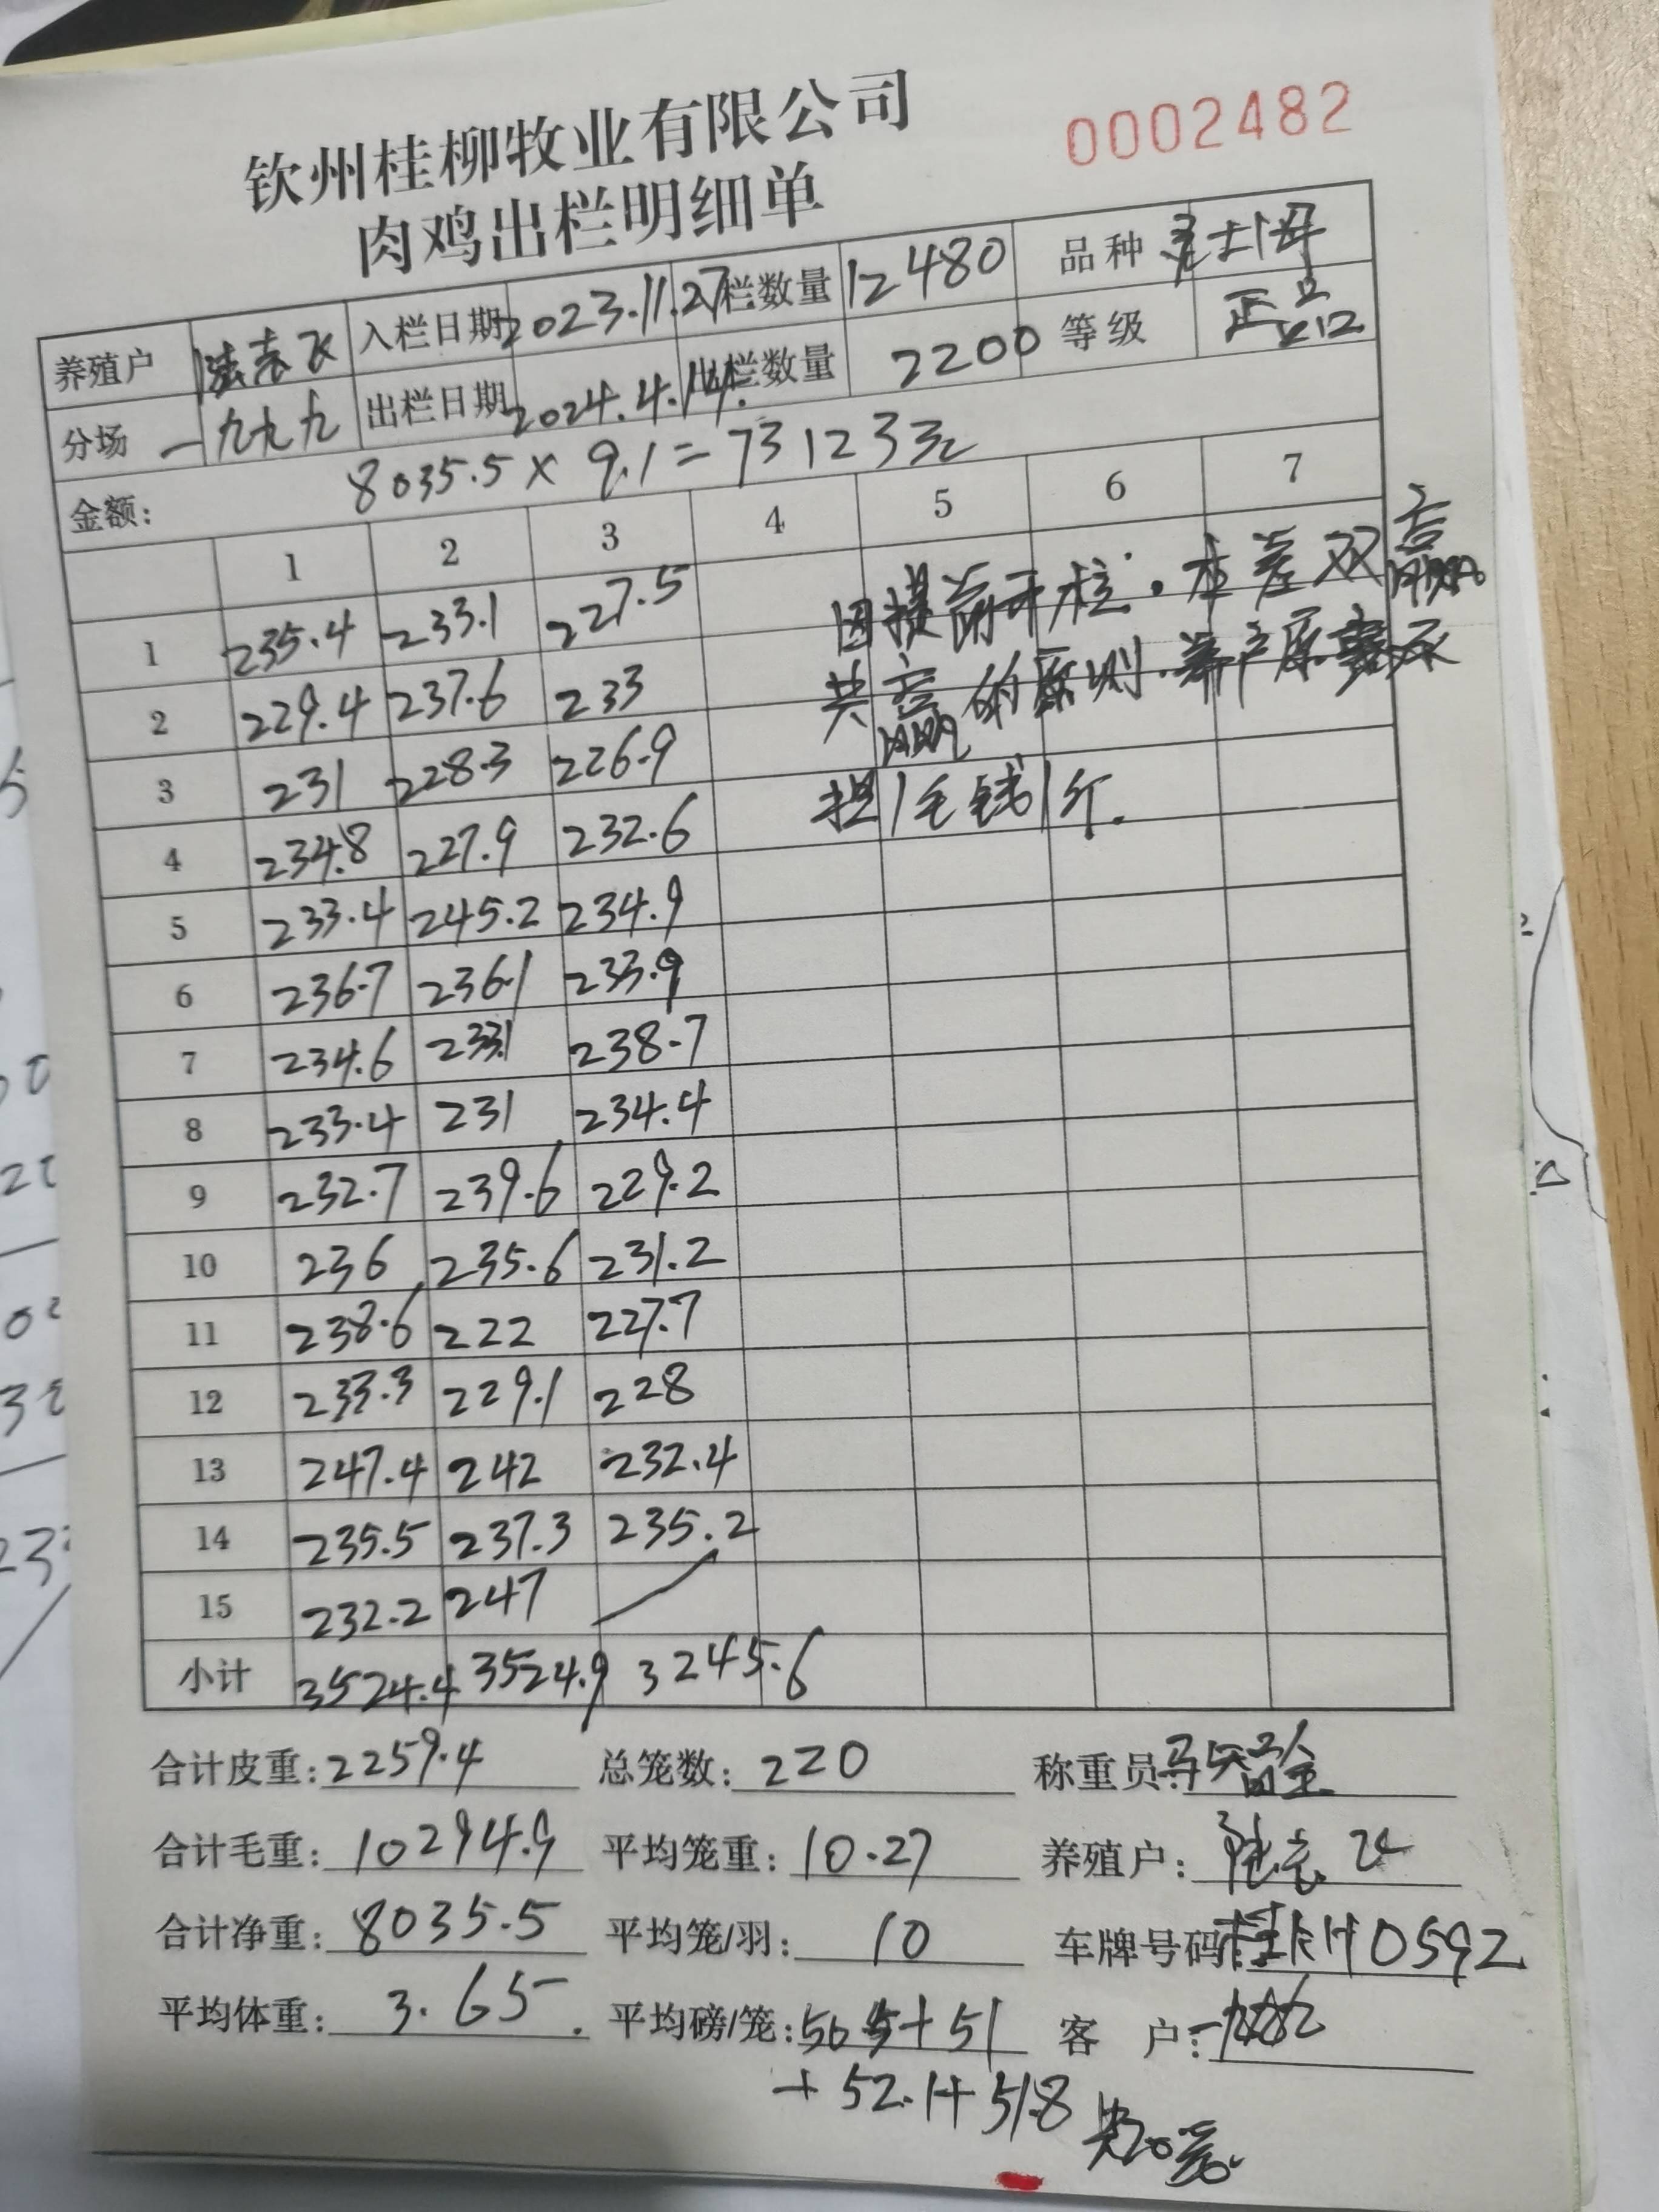 钦州桂柳牧业有限公司
0002482
肉鸡出栏明细单
养殖户 入栏日期 2023.11.27 栏数量 12480 品种
分场 一九九九 出栏日期 2024.4.14. 出栏数量 2200 等级 正品
金额: 8035.5 × 9.1 = 73123元
1 2 3 4 5 6 7
1 235.4 233.1 227.5
2 229.4 237.6 233
3 231 228.3 226.9
4 234.8 227.9 232.6
5 233.4 245.2 234.9
6 236.7 236.1 233.9
7 234.6 233.1 238.7
8 233.4 231 234.4
9 232.7 239.6 229.2
10 236 235.6 231.2
11 238.6 222 227.7
12 233.3 229.1 228
13 247.4 242 232.4
14 235.5 237.3 235.2
15 232.2 247
小计 3524.4 3524.9 3245.6
因提前开栏, 本着双赢
共赢的原则,
担1毛钱1斤.
合计皮重: 2259.4 总笼数: 220 称重员:
合计毛重: 10294.9 平均笼重: 10.27 养殖户:
合计净重: 8035.5 平均笼/羽: 10 车牌号码: 桂KH0592
平均体重: 3.65 平均磅/笼: 50.5+51 客 户:
+ 52.1+51.8 共20笼